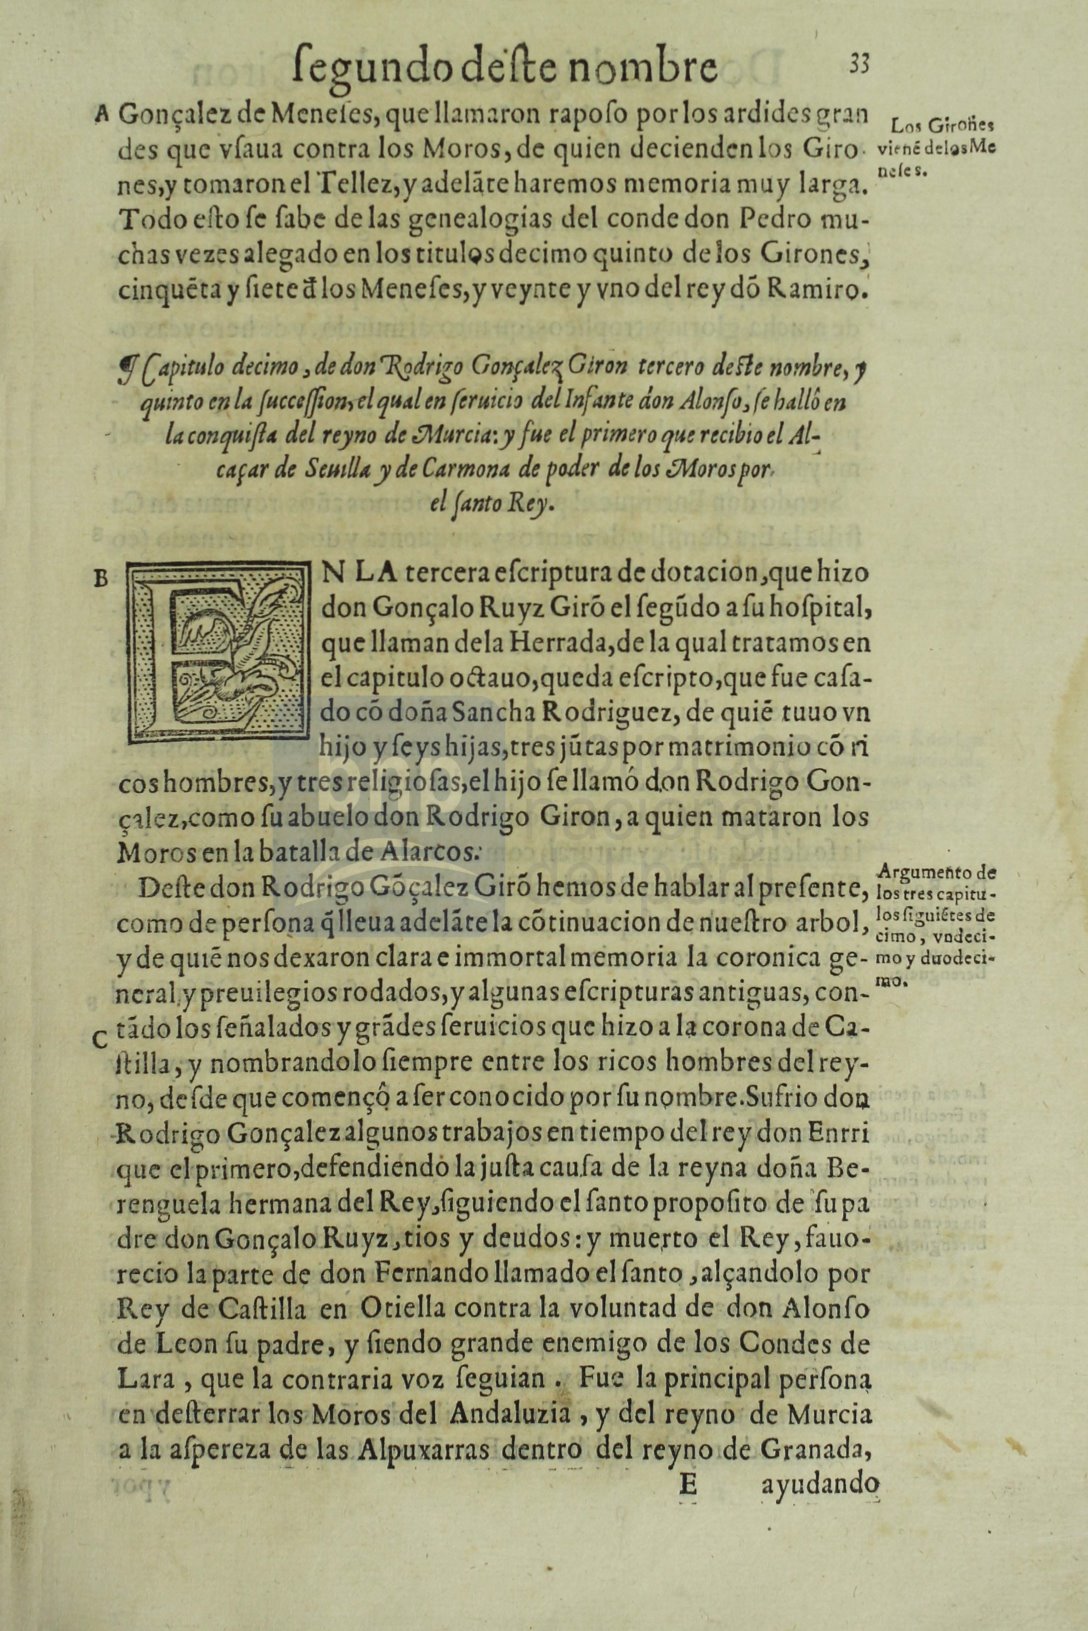 ſegundo deſte nombre 33
A Gonçalez de Meneſes, que llamaron rapoſo por los ardides gran
des que vſaua contra los Moros, de quien decienden los Giro-
nes, y tomaron el Tellez, y adelãte haremos memoria muy larga.
Todo eſto ſe ſabe de las genealogias del conde don Pedro mu-
chas vezes alegado en los titulos decimo quinto de los Girones,
cinquẽta y ſiete đ los Meneſes, y veynte y vno del rey dõ Ramiro.
Los Girones
vienẽ de los Me
neſes.
¶ Capitulo decimo, de don Rodrigo Gonçalez Giron tercero deſte nombre, y
quinto en la ſucceſſion, el qual en ſeruicio del Infante don Alonſo, ſe hallô en
la conquiſta del reyno de Murcia: y fue el primero que recibio el Al-
caçar de Seuilla y de Carmona de poder de los Moros por
el ſanto Rey.
B EN LA tercera eſcriptura de dotacion, que hizo
don Gonçalo Ruyz Girõ el ſegũdo a ſu hoſpital,
que llaman dela Herrada, de la qual tratamos en
el capitulo octauo, queda eſcripto, que fue caſa-
do cõ doña Sancha Rodriguez, de quiẽ tuuo vn
hijo y ſeys hijas, tres jũtas por matrimonio cõ ri
cos hombres, y tres religioſas, el hijo ſe llamó don Rodrigo Gon-
çalez, como ſu abuelo don Rodrigo Giron, a quien mataron los
Moros en la batalla de Alarcos.
Deſte don Rodrigo Gõçalez Girõ hemos de hablar al preſente,
como de perſona q̃ lleua adelãte la cõtinuacion de nueſtro arbol,
y de quiẽ nos dexaron clara e immortal memoria la coronica ge-
neral, y preuilegios rodados, y algunas eſcripturas antiguas, con-
C tãdo los ſeñalados y grãdes ſeruicios que hizo a la corona de Ca-
ſtilla, y nombrandolo ſiempre entre los ricos hombres del rey-
no, deſde que començô a ſer conocido por ſu nombre. Sufrio don
Rodrigo Gonçalez algunos trabajos en tiempo del rey don Enrri
que el primero, defendiendo la juſta cauſa de la reyna doña Be-
renguela hermana del Rey, ſiguiendo el ſanto propoſito de ſu pa
dre don Gonçalo Ruyz, tios y deudos: y muerto el Rey, fauo-
recio la parte de don Fernando llamado el ſanto, alçandolo por
Rey de Caſtilla en Otiella contra la voluntad de don Alonſo
de Leon ſu padre, y ſiendo grande enemigo de los Condes de
Lara, que la contraria voz ſeguian. Fue la principal perſona
en deſterrar los Moros del Andaluzia, y del reyno de Murcia
a la aſpereza de las Alpuxarras dentro del reyno de Granada,
Argumento de
los tres capitu-
los ſiguiẽtes de
cimo, vndeci-
mo y duodeci-
mo.
E ayudando